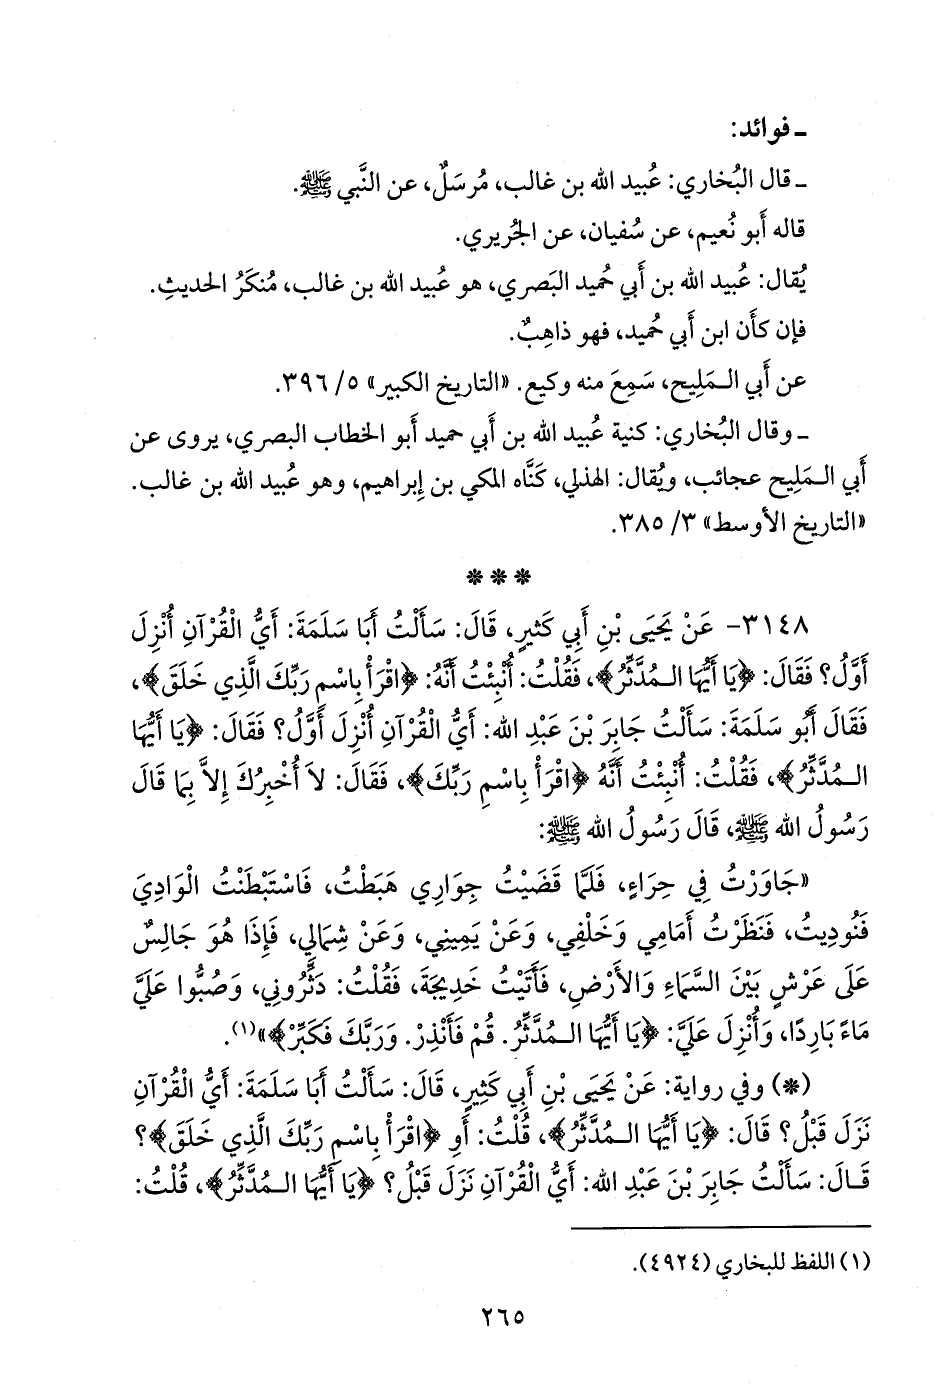 ـ فوائد:
ـ قال البُخاري: عُبيد الله بن غالب، مُرسَلٌ، عن النَّبي ﷺ.
قاله أَبو نُعيم، عن سُفيان، عن الجُريري.
يُقال: عُبيد الله بن أَبي حُميد البَصري، هو عُبيد الله بن غالب، مُنكَرُ الحديثِ.
فإن كأَن ابن أَبي حُميد، فهو ذاهِبٌ.
عن أَبي الـمَلِيح، سَمِعَ منه وكيع. «التاريخ الكبير» ٥/ ٣٩٦.
ـ وقال البُخاري: كنية عُبيد الله بن أَبي حميد أَبو الخطاب البصري، يروى عن
أَبي الـمَلِيح عجائب، ويُقال: الهذلي، كَنَّاه المكي بن إِبراهيم، وهو عُبيد الله بن غالب.
«التاريخ الأَوسط» ٣/ ٣٨٥.
* * *
٣١٤٨- عَنْ يَحْيَى بْنِ أَبِي كَثِيرٍ، قَالَ: سَأَلْتُ أَبَا سَلَمَةَ: أَيُّ الْقُرْآنِ أُنْزِلَ
أَوَّلُ؟ فَقَالَ: ﴿يَا أَيُّهَا الـمُدَّثِّرُ﴾، فَقُلْتُ: أُنْبِئْتُ أَنَّهُ: ﴿اقْرَأْ بِاسْمِ رَبِّكَ الَّذِي خَلَقَ﴾،
فَقَالَ أَبُو سَلَمَةَ: سَأَلْتُ جَابِرَ بْنَ عَبْدِ الله: أَيُّ الْقُرْآنِ أُنْزِلَ أَوَّلُ؟ فَقَالَ: ﴿يَا أَيُّهَا
الـمُدَّثِّرُ﴾، فَقُلْتُ: أُنْبِئْتُ أَنَّهُ ﴿اقْرَأْ بِاسْمِ رَبِّكَ﴾، فَقَالَ: لاَ أُخْبِرُكَ إِلاَّ بِمَا قَالَ
رَسُولُ الله ﷺ، قَالَ رَسُولُ الله ﷺ:
«جَاوَرْتُ فِي حِرَاءٍ، فَلَمَّا قَضَيْتُ جِوَارِي هَبَطْتُ، فَاسْتَبْطَنْتُ الْوَادِيَ
فَنُودِيتُ، فَنَظَرْتُ أَمَامِي وَخَلْفِي، وَعَنْ يَمِينِي، وَعَنْ شِمَالِي، فَإِذَا هُوَ جَالِسٌ
عَلَى عَرْشٍ بَيْنَ السَّمَاءِ وَالأَرْضِ، فَأَتَيْتُ خَدِيجَةَ، فَقُلْتُ: دَثِّرُونِي، وَصُبُّوا عَلَيَّ
مَاءً بَارِدًا، وَأُنْزِلَ عَلَيَّ: ﴿يَا أَيُّهَا الـمُدَّثِّرُ. قُمْ فَأَنْذِرْ. وَرَبَّكَ فَكَبِّرْ﴾»(١).
(*) وفي رواية: عَنْ يَحْيَى بْنِ أَبِي كَثِيرٍ، قَالَ: سَأَلْتُ أَبَا سَلَمَةَ: أَيُّ الْقُرْآنِ
نَزَلَ قَبْلُ؟ قَالَ: ﴿يَا أَيُّهَا الـمُدَّثِّرُ﴾، قُلْتُ: أَوِ ﴿اقْرَأْ بِاسْمِ رَبِّكَ الَّذِي خَلَقَ﴾؟
قَـالَ: سَأَلْتُ جَابِرَ بْنَ عَبْدِ الله: أَيُّ الْقُرْآنِ نَزَلَ قَبْلُ؟ ﴿يَا أَيُّهَا الـمُدَّثِّرُ﴾، قُلْتُ:
(١) اللفظ للبخاري (٤٩٢٤).
٢٦٥